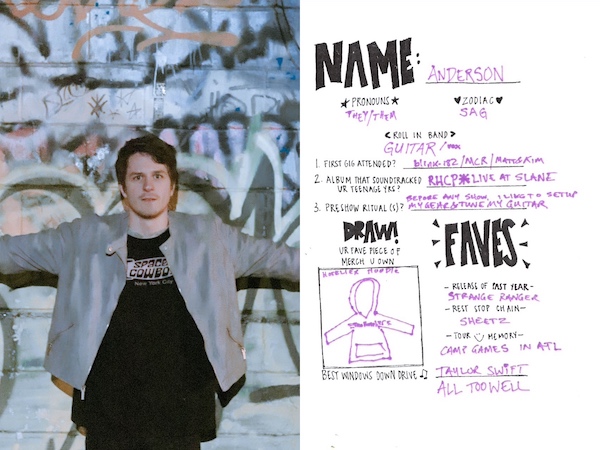 SPACE
COWBOY
New York City
NAME: ANDERSON
★PRONOUNS★
THEY/THEM
♥ZODIAC♥
SAG
<ROLL IN BAND>
GUITAR/
1. FIRST GIG ATTENDED? blink-182/MCR/MATT&KIM
2. ALBUM THAT SOUNDTRACKED UR TEENAGE YRS? RHCP LIVE AT SLANE
3. PRESHOW RITUAL(S)? BEFORE ANY SHOW, I LIKE TO SETUP
MY GEAR & TUNE MY GUITAR
DRAW!
UR FAVE PIECE OF
MERCH U OWN
HOODIE
FAVES
- RELEASE OF PAST YEAR -
STRANGE RANGER
- REST STOP CHAIN -
SHEETZ
- TOUR MEMORY -
CAMP GAMES IN ATL
BEST WINDOWS DOWN DRIVE ♫ TAYLOR SWIFT
ALL TOO WELL